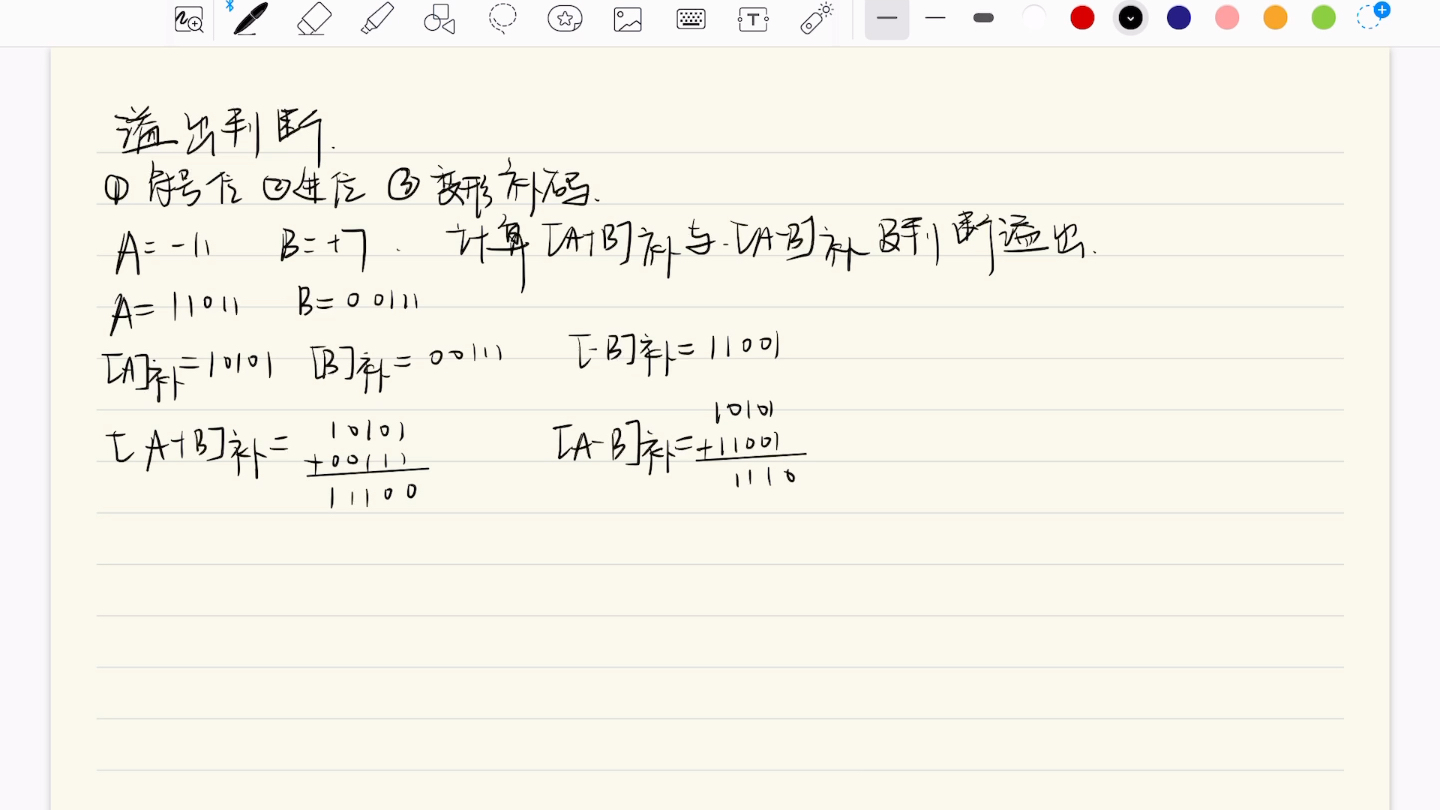 溢出判断.
① 符号位 ②进位 ③ 变形补码.
A = -11 B = +7 . 计算 [A+B]补与[A-B]补 及判断溢出.
A = 11011 B = 00111
[A]补 = 10101 [B]补 = 00111 [-B]补 = 11001
10101 10101
[A+B]补 = +00111 [A-B]补 = +11001
11100 1110